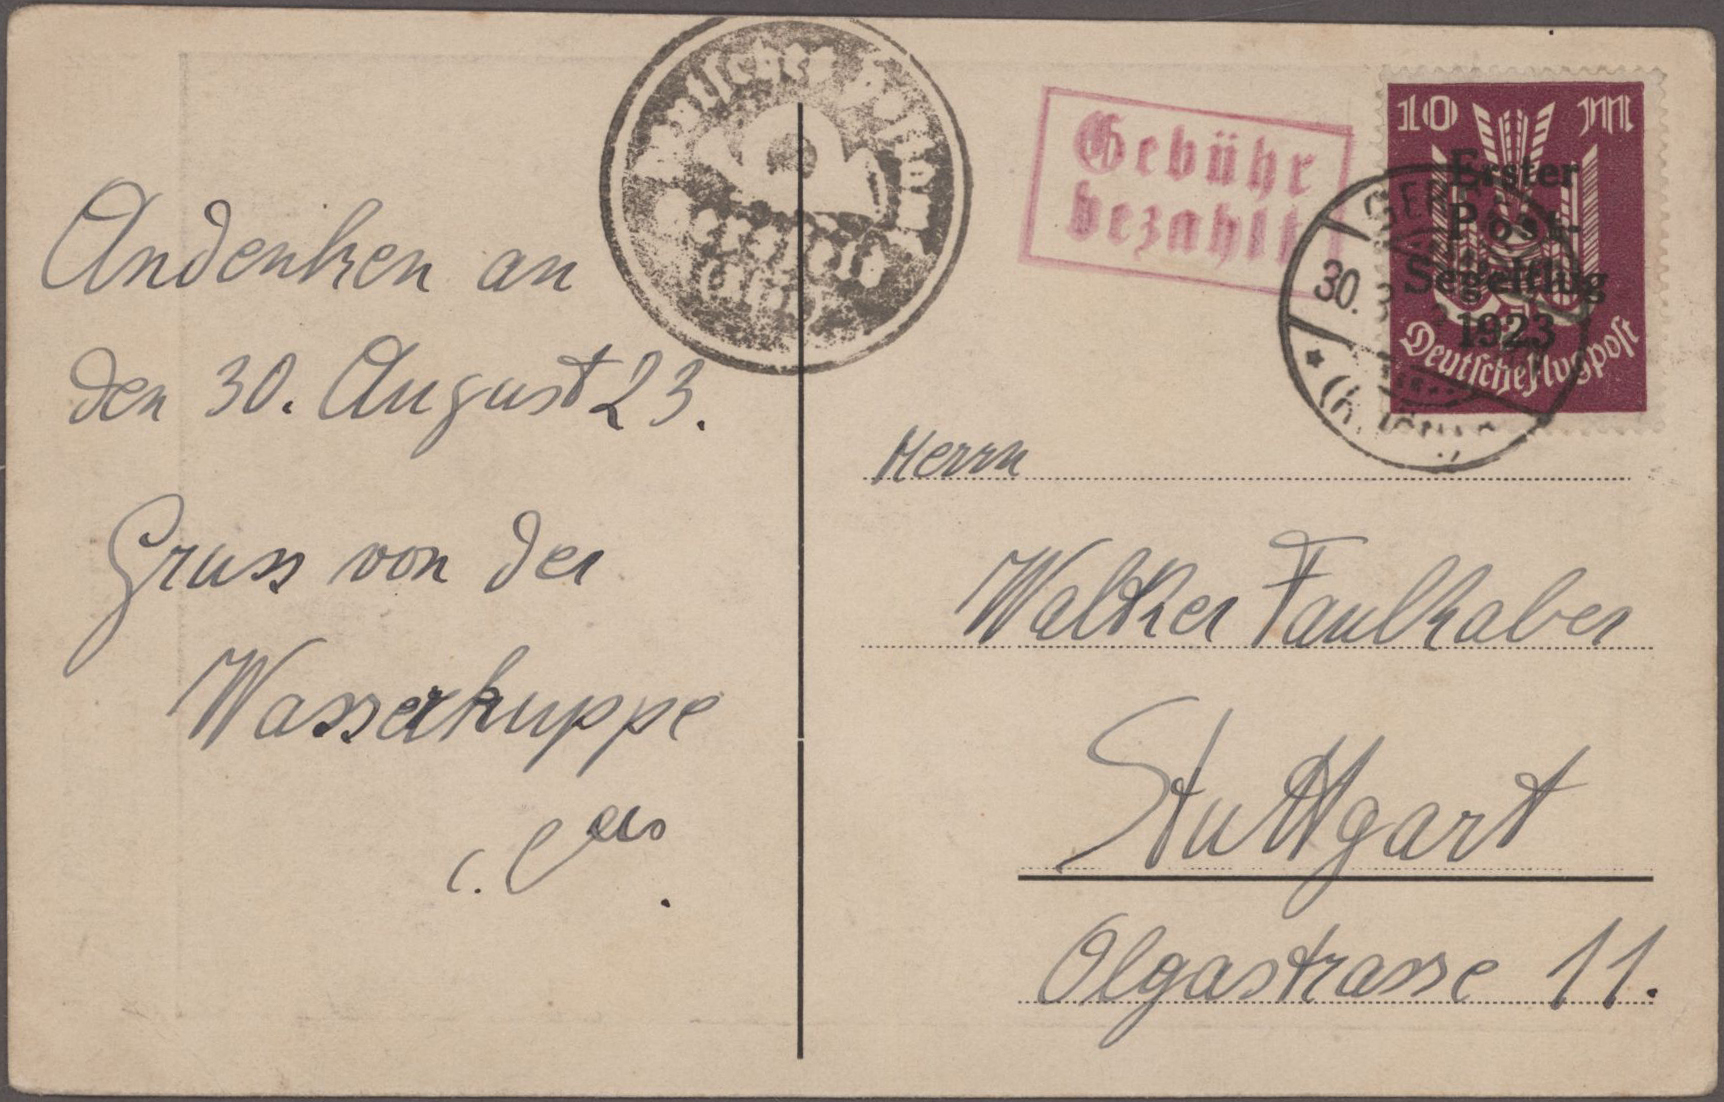 Andenken an
den 30. August 23.
Gruss von der
Wasserkuppe
Deutscher
Gersfeld
Gebühr
bezahlt
10 M
Erster
Post-
Segelflug
1923
Deutsche Flugpost
GERSFELD
30. 8
(RHÖN)
Herrn
Walther Faulhaber
Stuttgart
Olgastrasse 11.